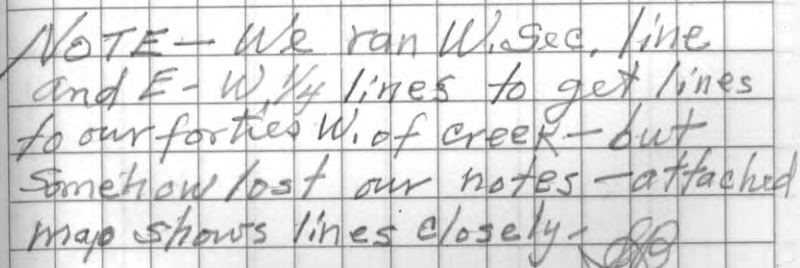 NOTE - We ran W. Sec. line
and E-W. 1/4 lines to get lines
to our forties W. of creek - but
Somehow lost our notes - attached
map shows lines closely -